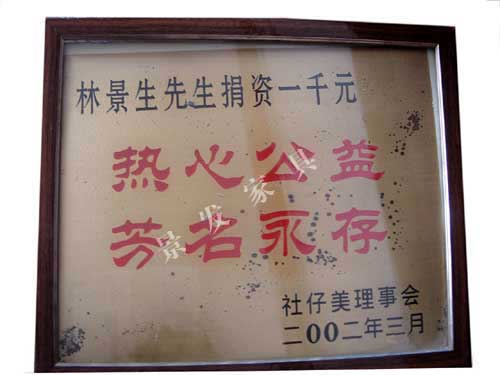 林景生先生捐资一千元
热心公益
芳名永存
景发家具
社仔美理事会
二00二年三月